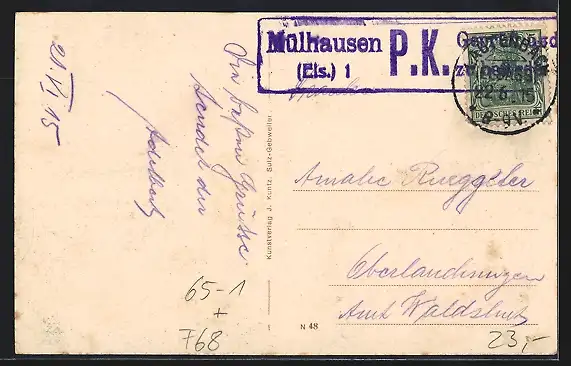 21. VI. 15
Die besten Grüsse
sendet dir
Adelbert
65-1
+
768
Kunstverlag J. Kuntz, Sulz-Gebweiler
N 48
Mülhausen
(Els.) 1
P.K.
22.6.15
DEUTSCHES REICH
Amalie Rueggeber
Oberlauchringen
Amt Waldshut
23,-